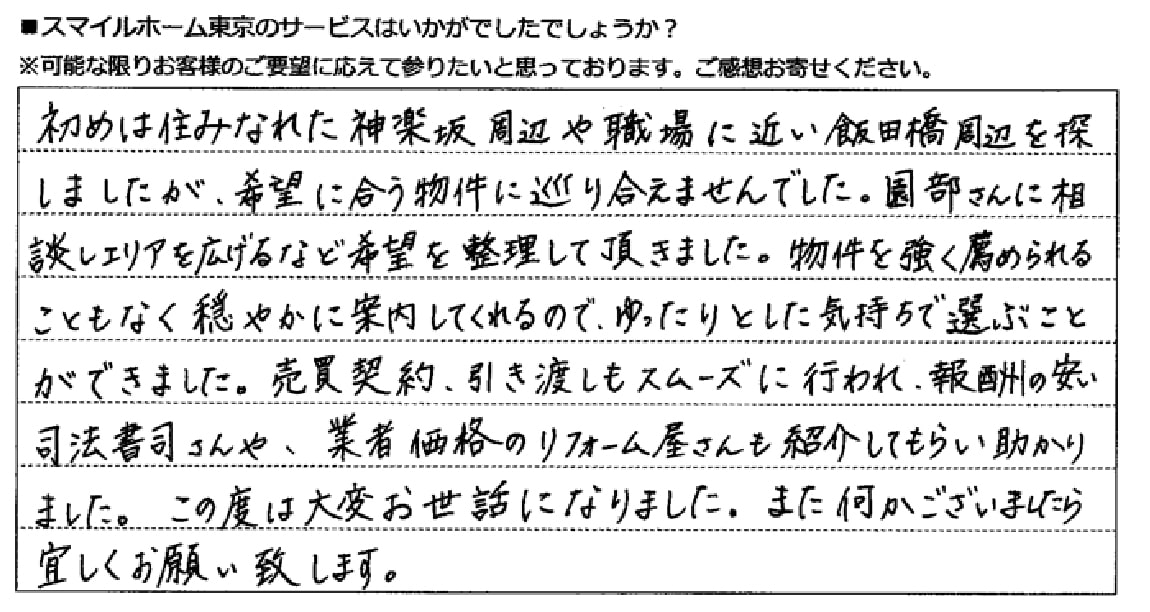 ■スマイルホーム東京のサービスはいかがでしたでしょうか？
※可能な限りお客様のご要望に応えて参りたいと思っております。ご感想お寄せください。
初めは住みなれた神楽坂周辺や職場に近い飯田橋周辺を探
しましたが、希望に合う物件に巡り合えませんでした。園部さんに相
談しエリアを広げるなど希望を整理して頂きました。物件を強く薦められる
こともなく穏やかに案内してくれるので、ゆったりとした気持ちで選ぶこと
ができました。売買契約、引き渡しもスムーズに行われ、報酬の安い
司法書司さんや、業者価格のリフォーム屋さんも紹介してもらい助かり
ました。この度は大変お世話になりました。また何かございましたら
宜しくお願い致します。